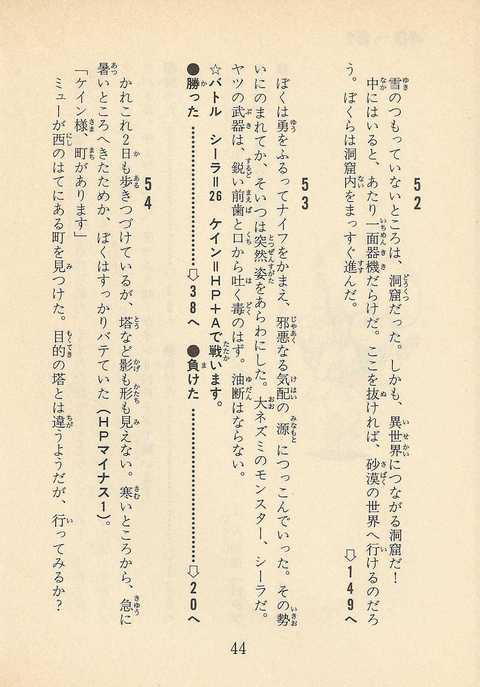 52
雪のつもっていないところは、洞窟だった。しかも、異世界につながる洞窟だ！
中にはいると、あたり一面器機だらけだ。ここを抜ければ、砂漠の世界へ行けるのだろ
う。ぼくらは洞窟内をまっすぐ進んだ。
⇨149へ
53
ぼくは勇をふるってナイフをかまえ、邪悪なる気配の源につっこんでいった。その勢
いにのまれてか、そいつは突然姿をあらわにした。大ネズミのモンスター、シーラだ。
ヤツの武器は、鋭い前歯と口から吐く毒のはず。油断はならない。
☆バトル　シーラ＝26　ケイン＝HP＋Aで戦います。
●勝った……………⇨38へ　●負けた……………⇨20へ
54
かれこれ2日も歩きつづけているが、塔など影も形も見えない。寒いところから、急に
暑いところへきたためか、ぼくはすっかりバテていた（HPマイナス1）。
「ケイン様、町があります」
ミューが西のはてにある町を見つけた。目的の塔とは違うようだが、行ってみるか？
44